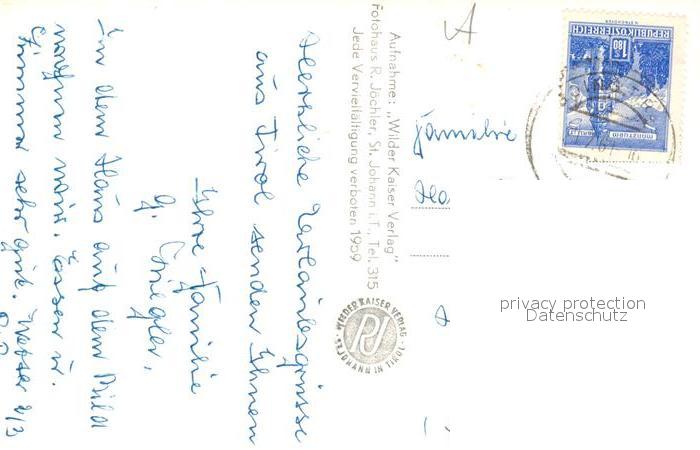 Herzliche Urlaubsgrüsse
aus Tirol senden Ihnen
Ihre Familie
G.
In dem Haus auf dem Bild
wohnen wir. Essen u.
Zimmer sehr gut. Wetter 2/3
Aufnahme: „Wilder Kaiser Verlag"
Fotohaus R. Jöchler, St. Johann i. T., Tel. 315
Jede Vervielfältigung verboten 1959
WILDER KAISER VERLAG
ST. JOHANN IN TIROL
A
REPUBLIK ÖSTERREICH
S 1.80
MÜNZTURM
HALL i.T.
Familie
privacy protection
Datenschutz